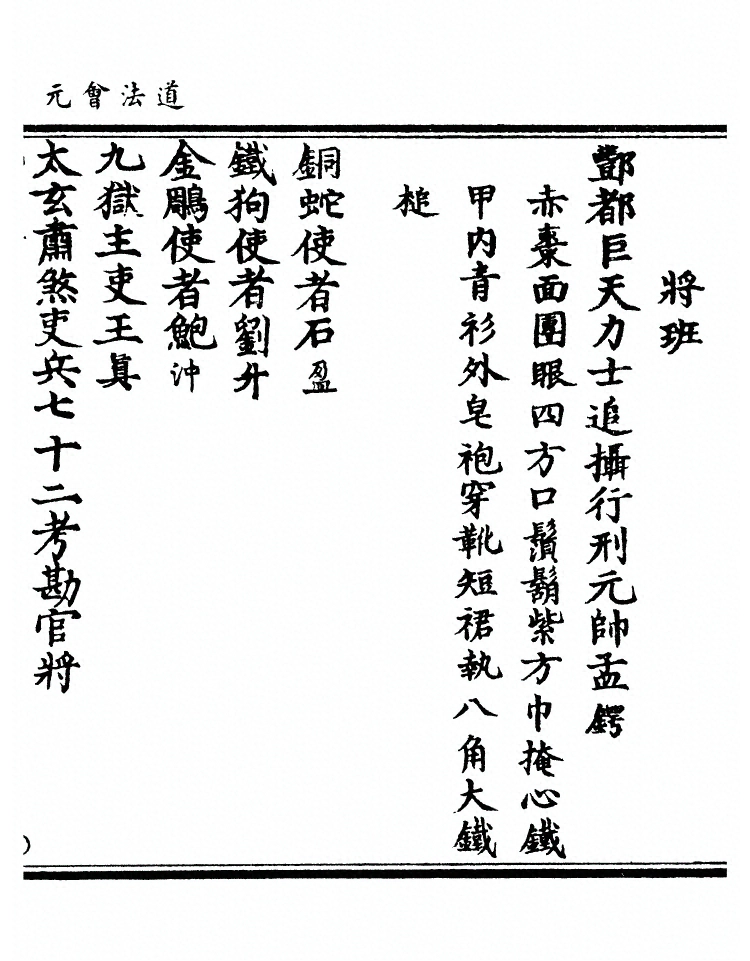 道法會元
將班
酆都巨天力士追攝行刑元帥孟鍔
赤棗面團眼四方口鬚鬍紫方巾掩心鐵
甲內青衫外皂袍穿靴短裙執八角大鐵
槌
銅蛇使者石盈
鐵狗使者劉升
金鵰使者鮑沖
九獄主吏王真
太玄肅煞吏兵七十二考勘官將